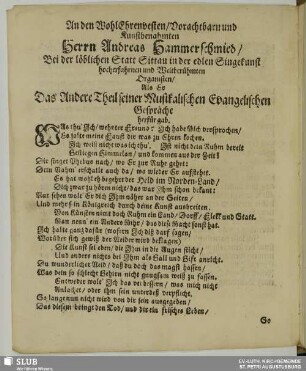 An den WohlEhrenvesten/Vorachtbarn und
Kunstbenahmten
Herrn Andreas Hammerschmied/
Bei der löblichen Statt Sittau in der edlen Singekunst
hocherfahrnen und Weitberühmten
Organisten/
Als Er
Das Andere Theil seiner Musikalischen Evangelischen
Gespräche
herfür gab.
Was thu' Ich/wehrter Freund? Ich habe Dir versprochen/
Es solte meine Faust dir was zu Ehren kochen.
Ich will nicht was ich thu'. Ist nicht dein Ruhm bereit
Bei
und kommen aus der Zeit?
Die singet Phebus nach/ wo Er zur Ruhe gehet:
Dein Nahm' erschallt auch da/ wo wieder Er aufstehet.
So hat wohl eh begehret der Held im Norden-Land/
Dich zwar zu hören nicht/ das war Ihm schon bekant:
Nur sehen wolt' Er dich
Und mehrt sein Königreich durch deine Kunst ausbreiten.
Von Künsten nimt doch Ruhm ein Land/ Dorff/ Fleck und Statt.
Man nenn' ein Anders Mehr/ das diese Macht sonst hat.
Ich halte gantz dafür (wofern Ich diß darf sagen/
Worüber sich gewiß der Neider wird beklagen)
Die Kunst sei eben/ die Ihm in die Augen sticht/
Und andre nichts bei Ihm als Gall und Gift anricht.
Du wunderlicher Neid/ daß du doch das magst hassen/
Was dein so schlecht Gehirn nicht gnugsam weiß zu fassen.
Entweder wols' Ich das
was mich nicht
oder ihm sein unterdeß verpflicht.
So lange nun nicht wird von dir sein ausgegeben/
Das diesem bringt den Tod/ und dir ein frisches Leben/
Ge
SLUB
Wir führen Wissen.
EV.-LUTH. KIRCHGEMEINDE
ST. PETRI AUGUSTUSBURG